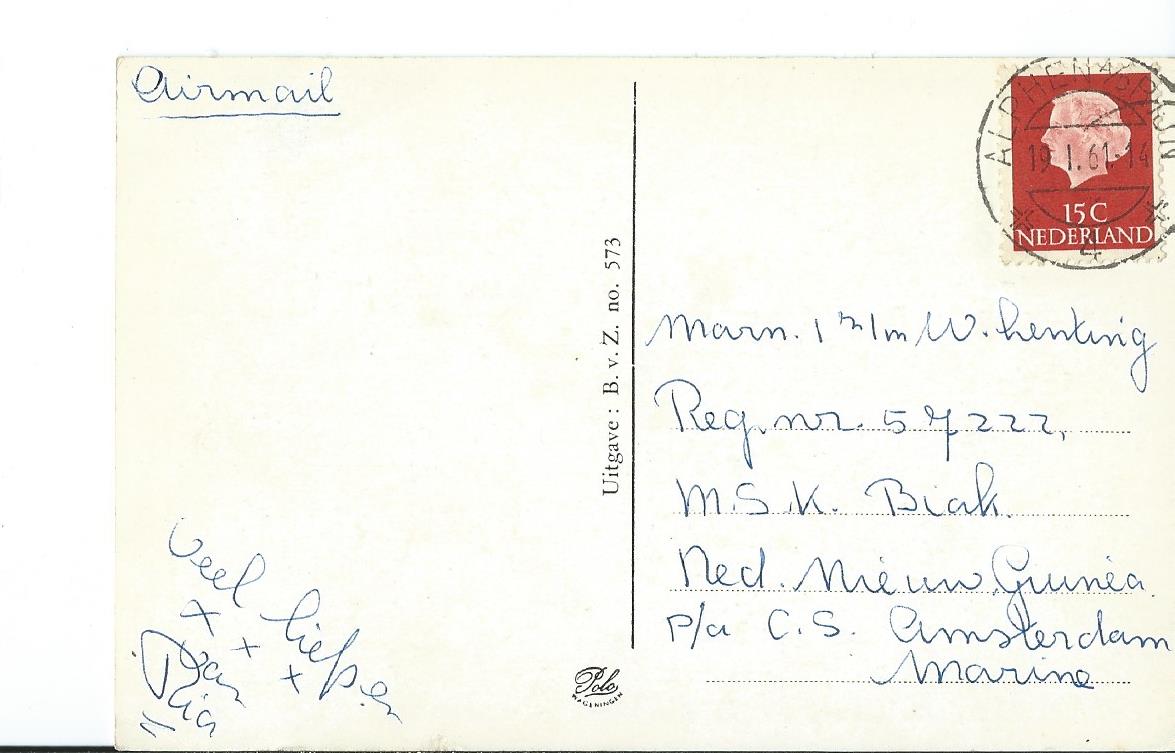 Airmail
ALPHEN A/D RIJN
19.I.61.14
4
15 C
NEDERLAND
Uitgave: B. v. Z. no. 573
Marn. 1 W. henting
Reg. nr. 57222,
M.S.K. Biak.
Ned. Nieuw Guinéa.
P/a C.S. Amsterdam
Marine
veel liefs en
x x x
van
Ria
Polo
WAGENINGEN